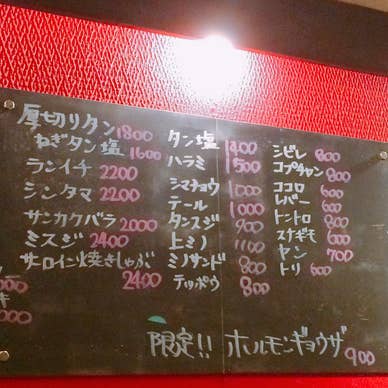 厚切りタン 1800
ねぎタン塩 1600
ランイチ 2200
シンタマ 2200
サンカクバラ 2000
ミスジ 2400
サーロイン焼きしゃぶ 2400
キ
タン塩 1400
ハラミ 1500
シマチョウ 1000
テール 1000
タンスジ 900
上ミノ 1100
ミノサンド 800
テッポウ 800
シビレ 800
コプチャン 800
ココロ 600
レバー 600
トントロ 800
スナギモ 600
ヤン 700
トリ 600
限定!! ホルモンギョウザ 900